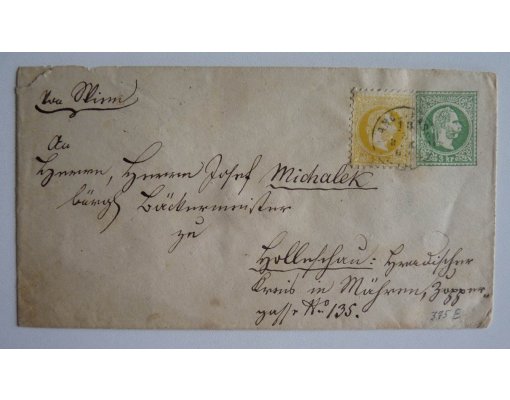 Von Wien
An
Herrn, Herrn Josef Michalek
bürgl Bäckermeister
zu
Holleschau: Hradischer
Kreis in Mähren, Zopper
gasse No 135.
3 kr
375 E